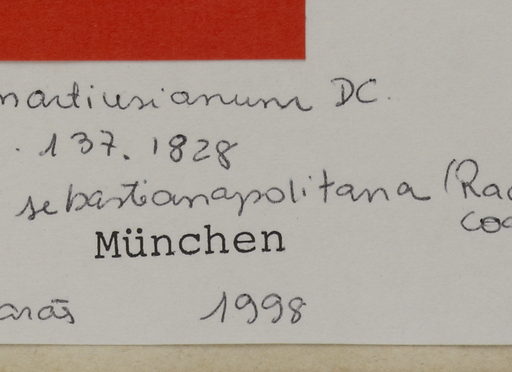 martiusianum DC.
. 137. 1828
sebastianapolitana (Rad
coa
München
arās 1998